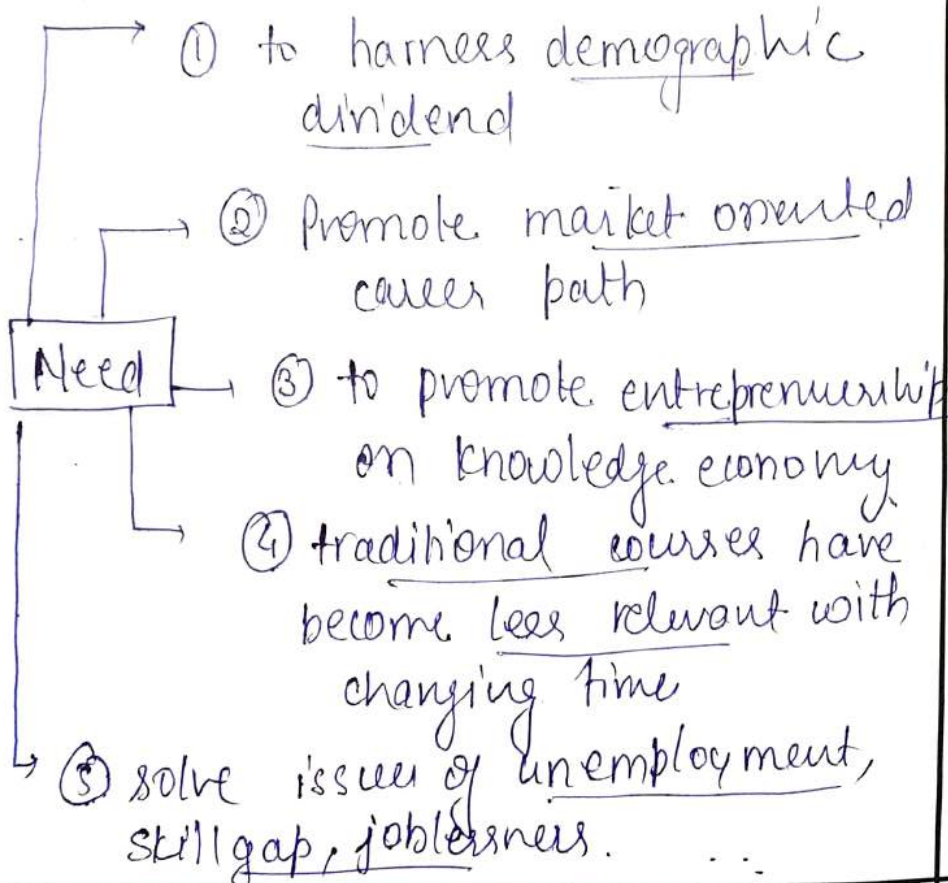 ① to harness demographic
dividend
② Promote market oriented
career path
Need
③ to promote entreprenuership
on knowledge economy
④ traditional courses have
become less relevant with
changing time
⑤ solve issues of unemployment,
skill gap, joblessness.